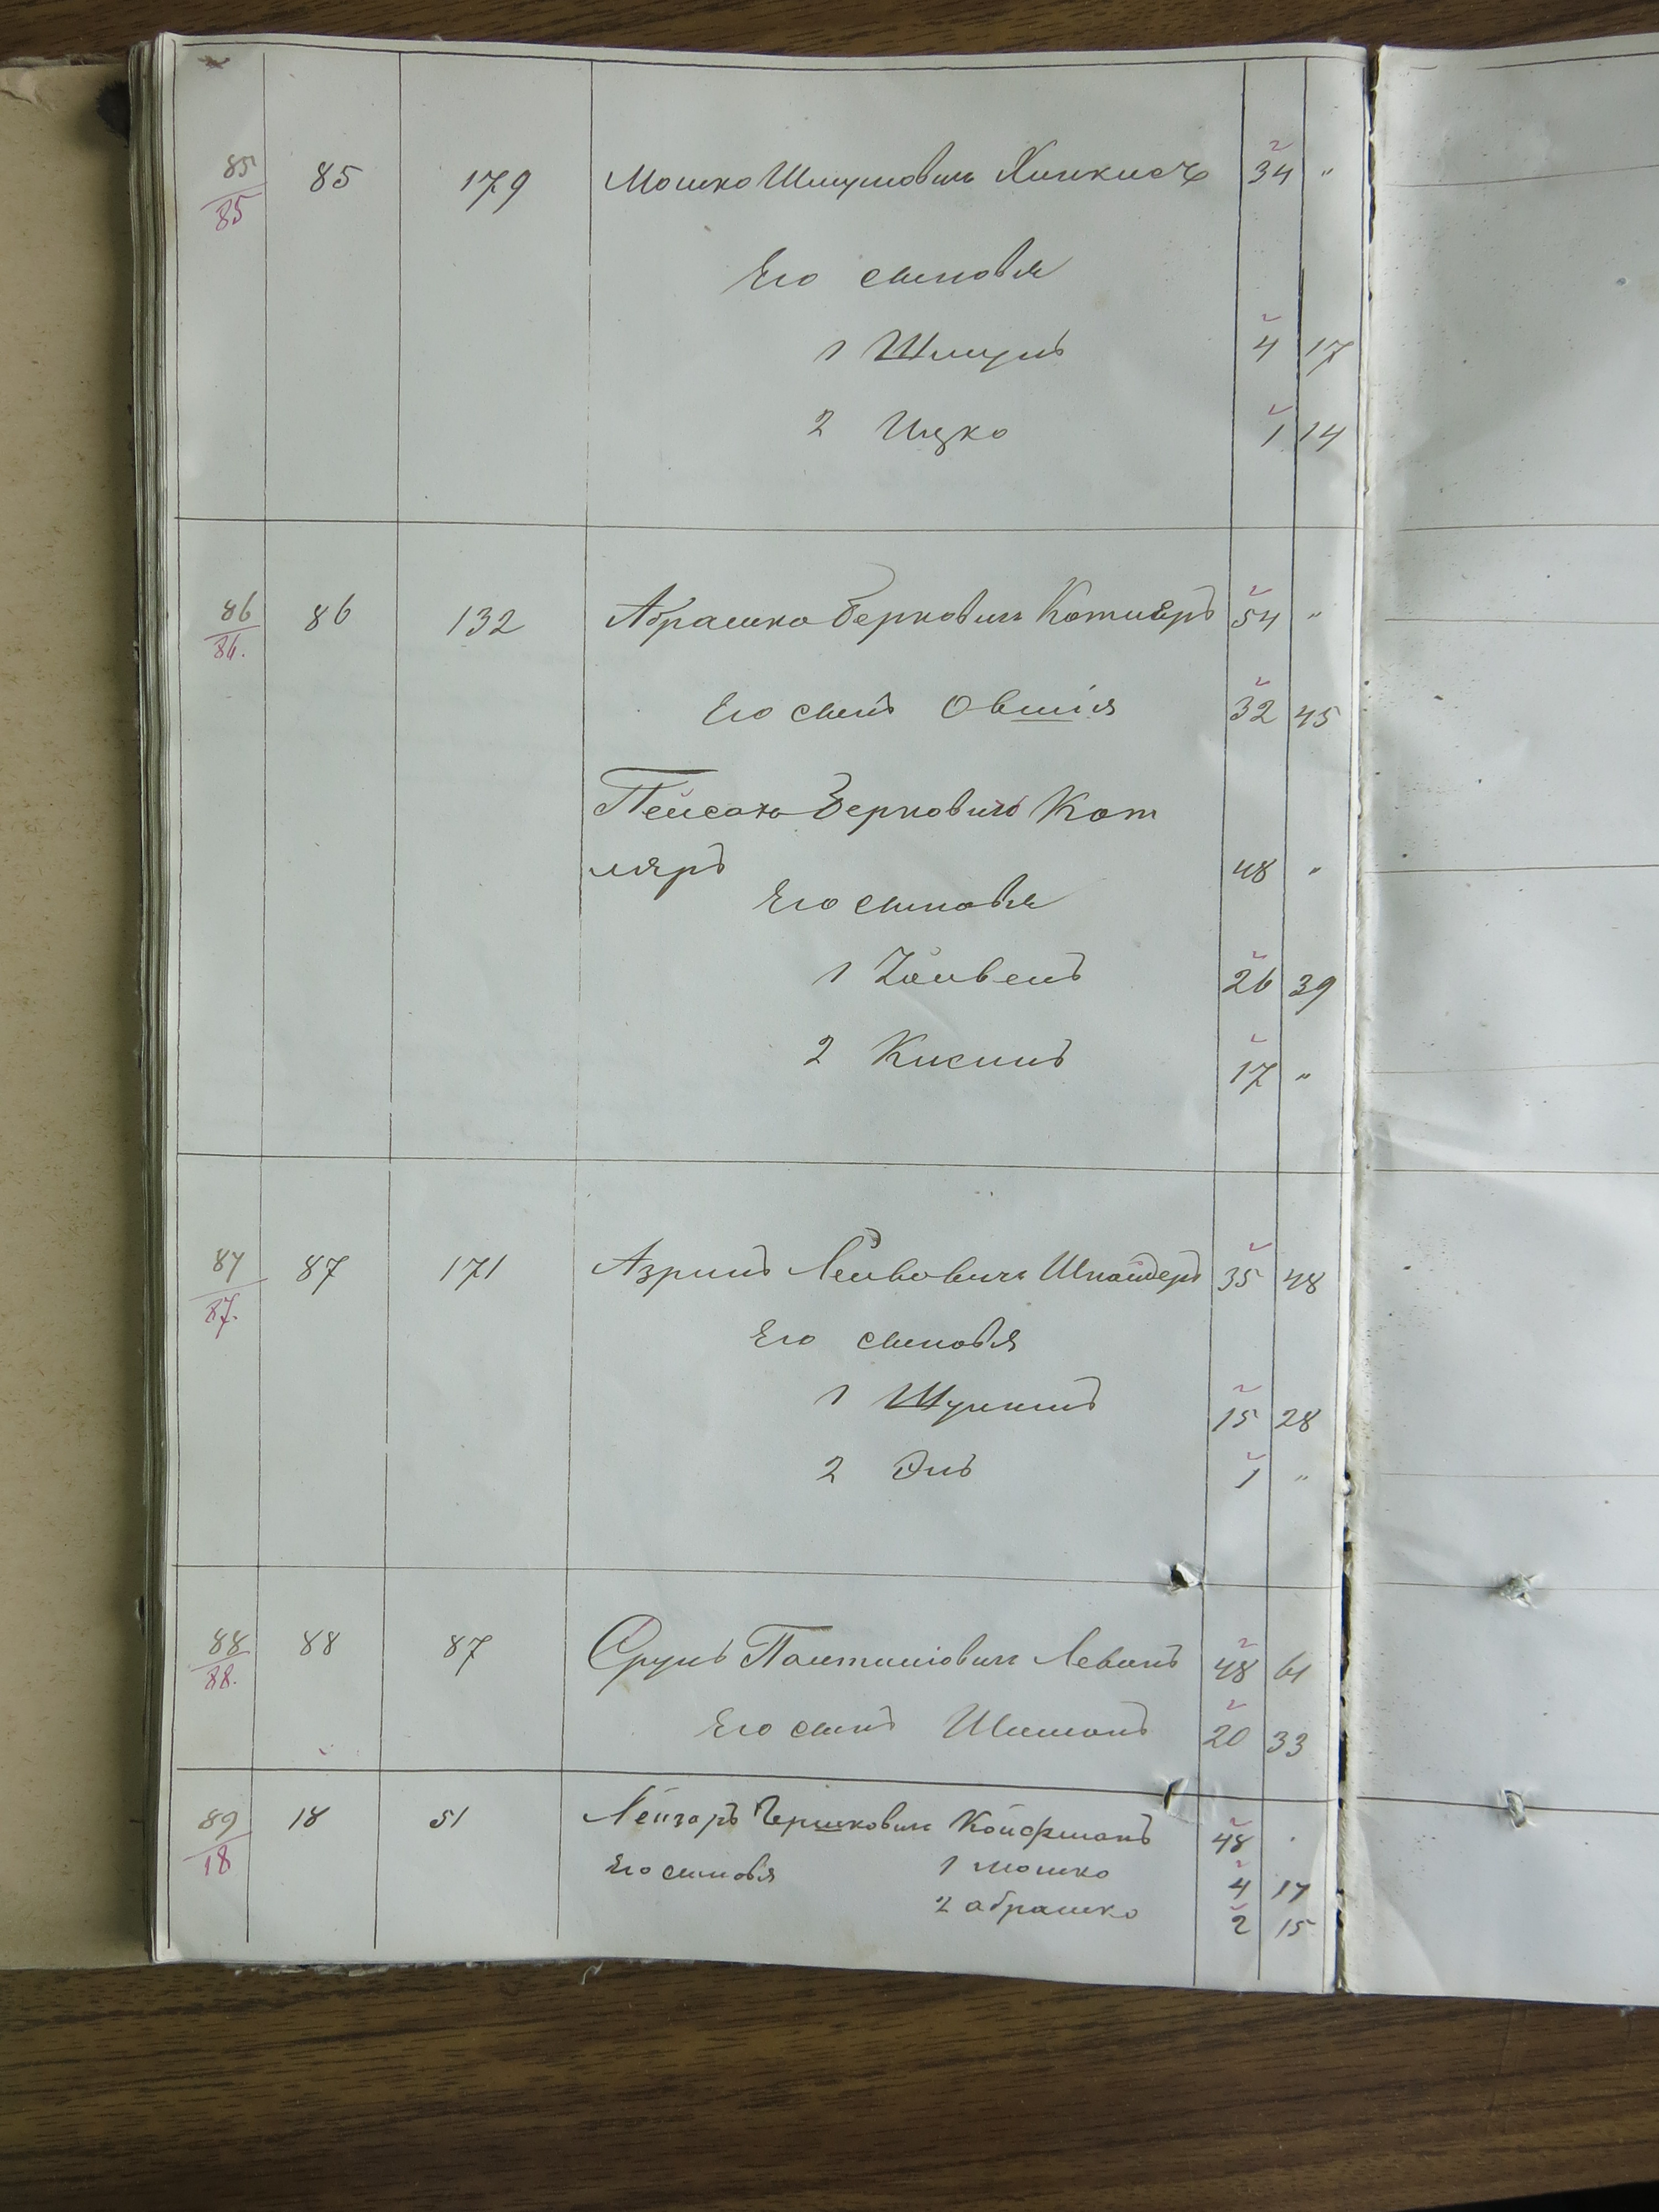 85/85 85 179 Мошко Шмулович Хинкисъ 34 "
Его сыновья
1 Шмуль 4 17
2 Ицко 1 14
86/86. 86 132 Абрашко Беркович Котляръ 54 "
Его сынъ Овшія 32 45
Пейсахъ Берковичъ Кот
ляръ 48 "
Его сыновья
1 Лейвенъ 26 39
2 Кисиль 17 "
87/87. 87 171 Азрилъ Лейбовичъ Шнайдеръ 35 48
Его сыновья
1 Шулимъ 15 28
2 Эль 1 "
88/88. 88 87 Сруль Палтиіович Левинъ 48 61
Его сынъ Шимонъ 20 33
89/18 18 51 Лейзаръ Гершкович Койфманъ 48 .
Его сыновья 1 Мошко 4 17
2 Абрашко 2 15